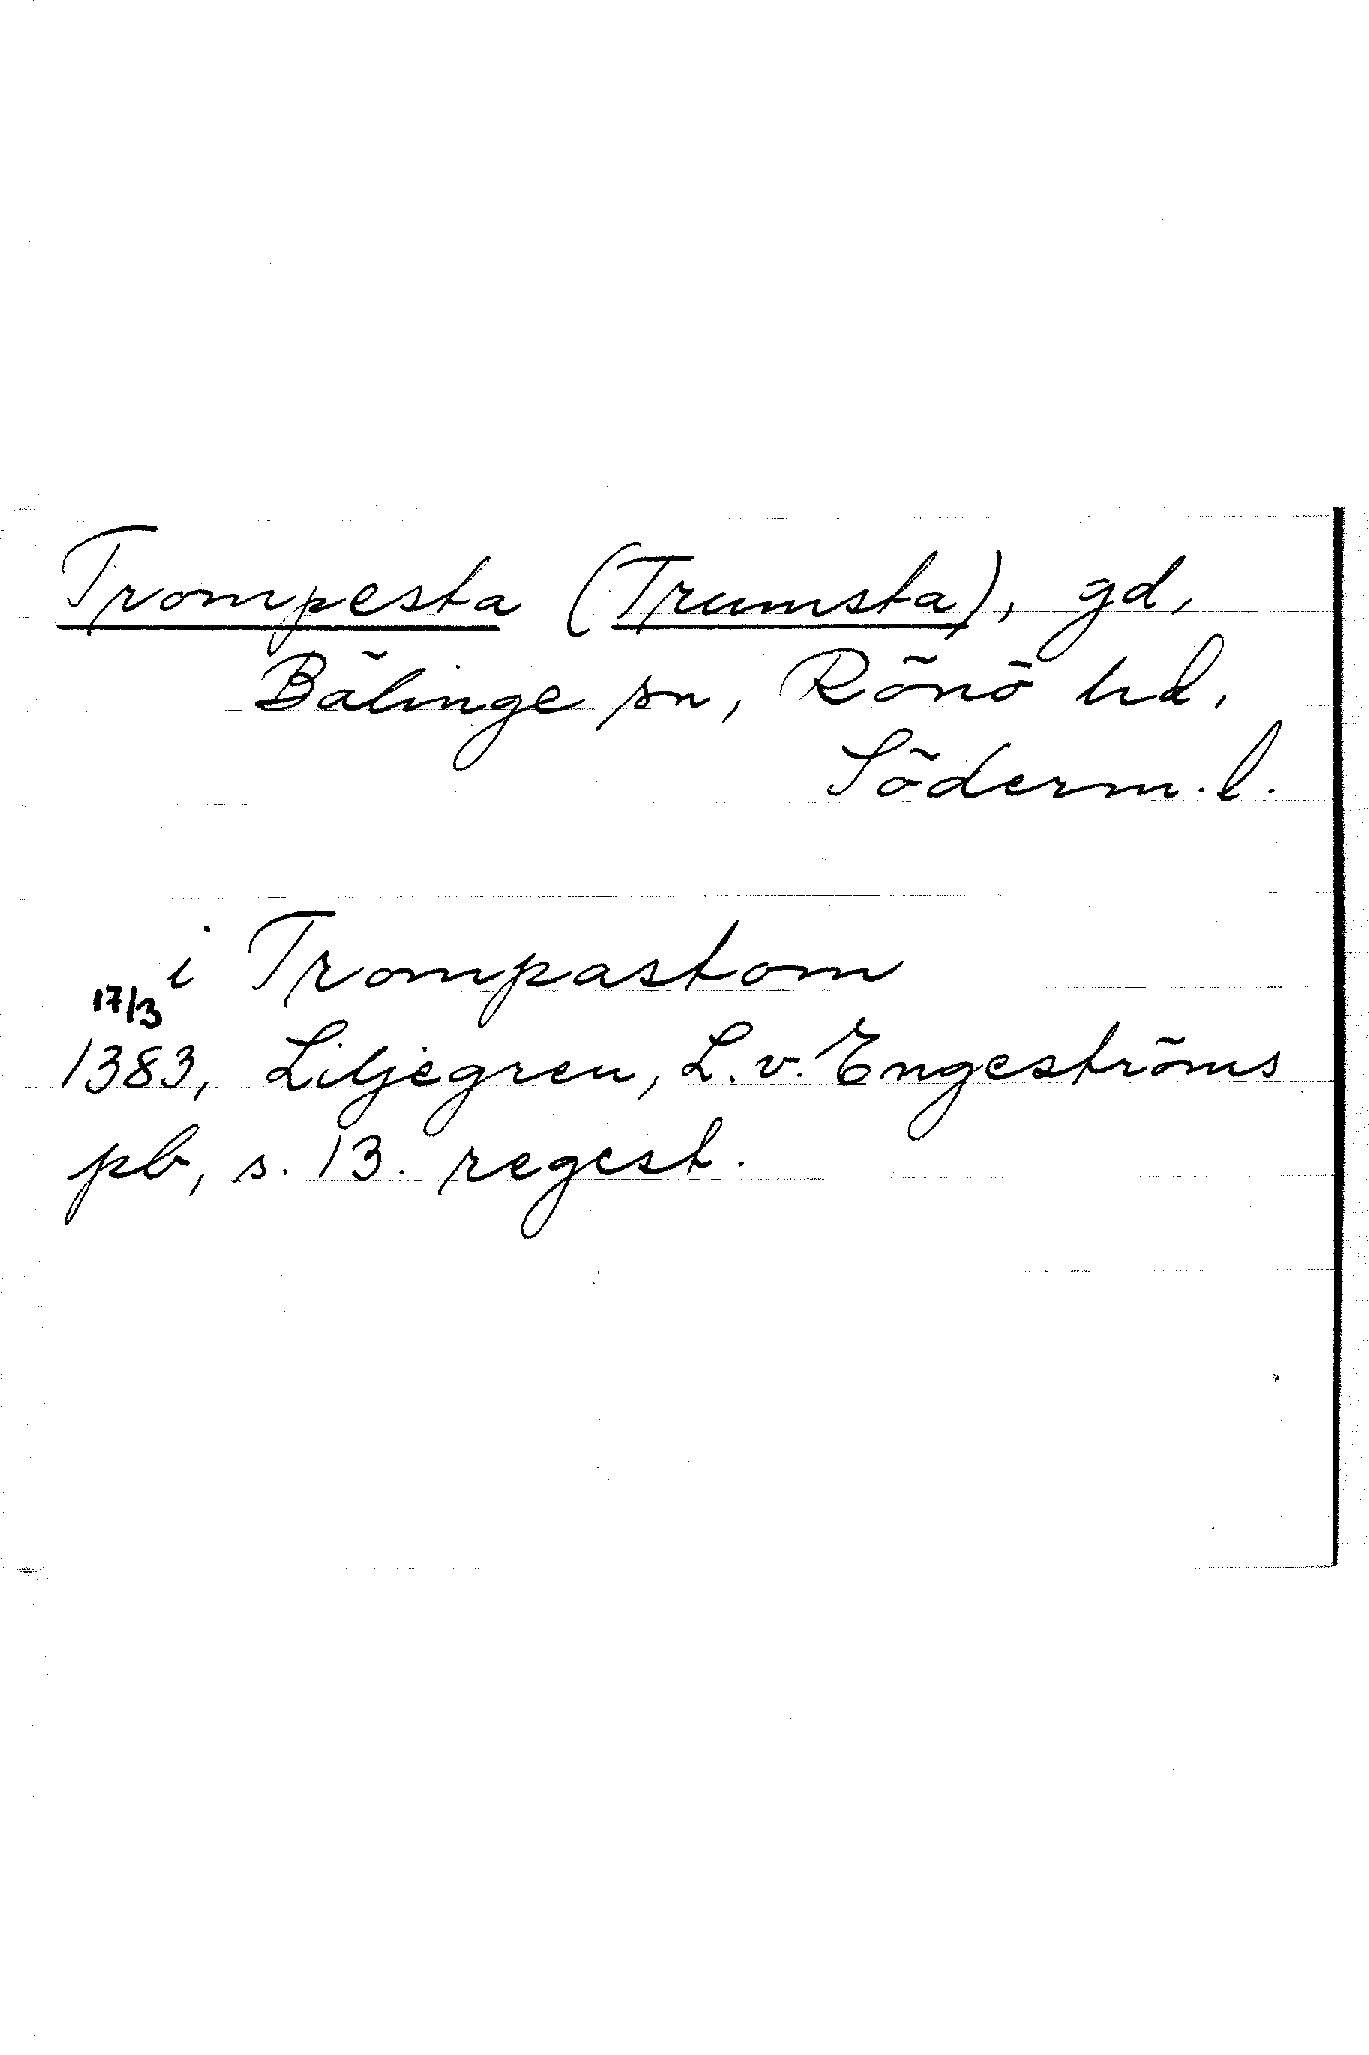 Trompesta (Trumsta), gd,
Bälinge sn, Rönö hd,
Söderm. l.
i Trompastom
17/3
1383, Liljegren, L. v. Engeströms
pb, s. 13. regest.